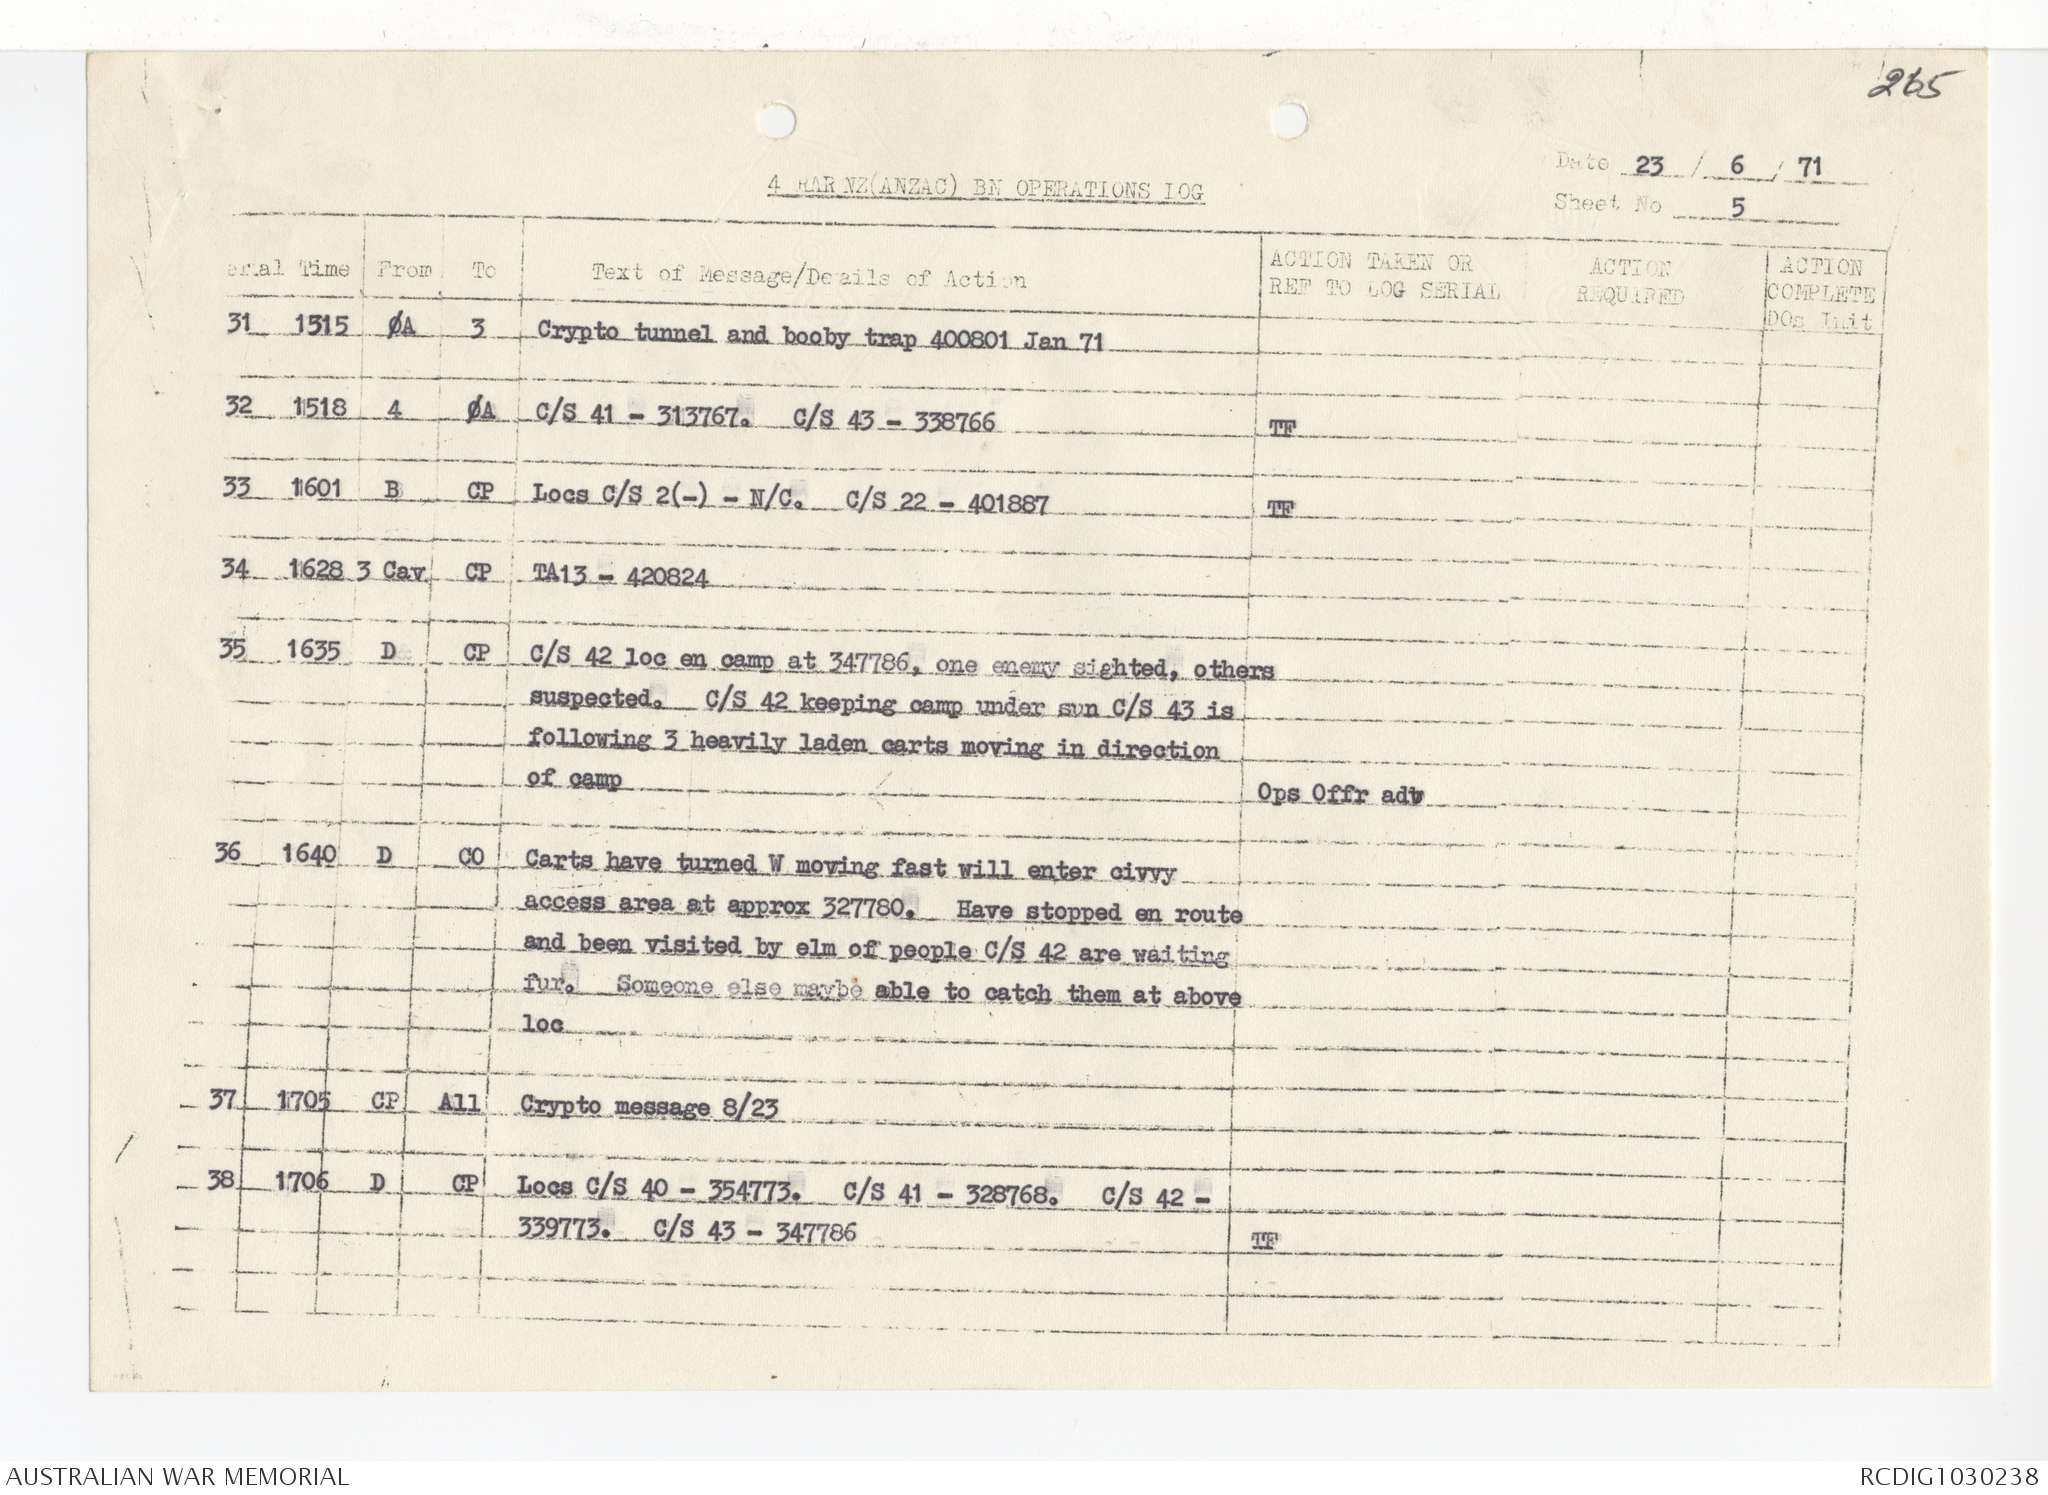 265
Date 23 / 6 / 71
4 RAR NZ(ANZAC) BN OPERATIONS LOG
Sheet No 5
erial Time From To Text of Message/Details of Action ACTION TAKEN OR REF TO LOG SERIAL ACTION REQUIRED ACTION COMPLETE DOs Unit
31 1515 ØA 3 Crypto tunnel and booby trap 400801 Jan 71
32 1518 4 ØA C/S 41 - 313767. C/S 43 - 338766 TF
33 1601 B CP Locs C/S 2(-) - N/C. C/S 22 - 401887 TF
34 1628 3 Cav CP TA13 - 420824
35 1635 D CP C/S 42 loc en camp at 347786, one enemy sighted, others
suspected. C/S 42 keeping camp under sun C/S 43 is
following 3 heavily laden carts moving in direction
of camp Ops Offr adv
36 1640 D CO Carts have turned W moving fast will enter civvy
access area at approx 327780. Have stopped en route
and been visited by elm of people C/S 42 are waiting
fur. Someone else maybe able to catch them at above
loc
37 1705 CP All Crypto message 8/23
38 1706 D CP Locs C/S 40 - 354773. C/S 41 - 328768. C/S 42 -
339773. C/S 43 - 347786 TF
AUSTRALIAN WAR MEMORIAL RCDIG1030238